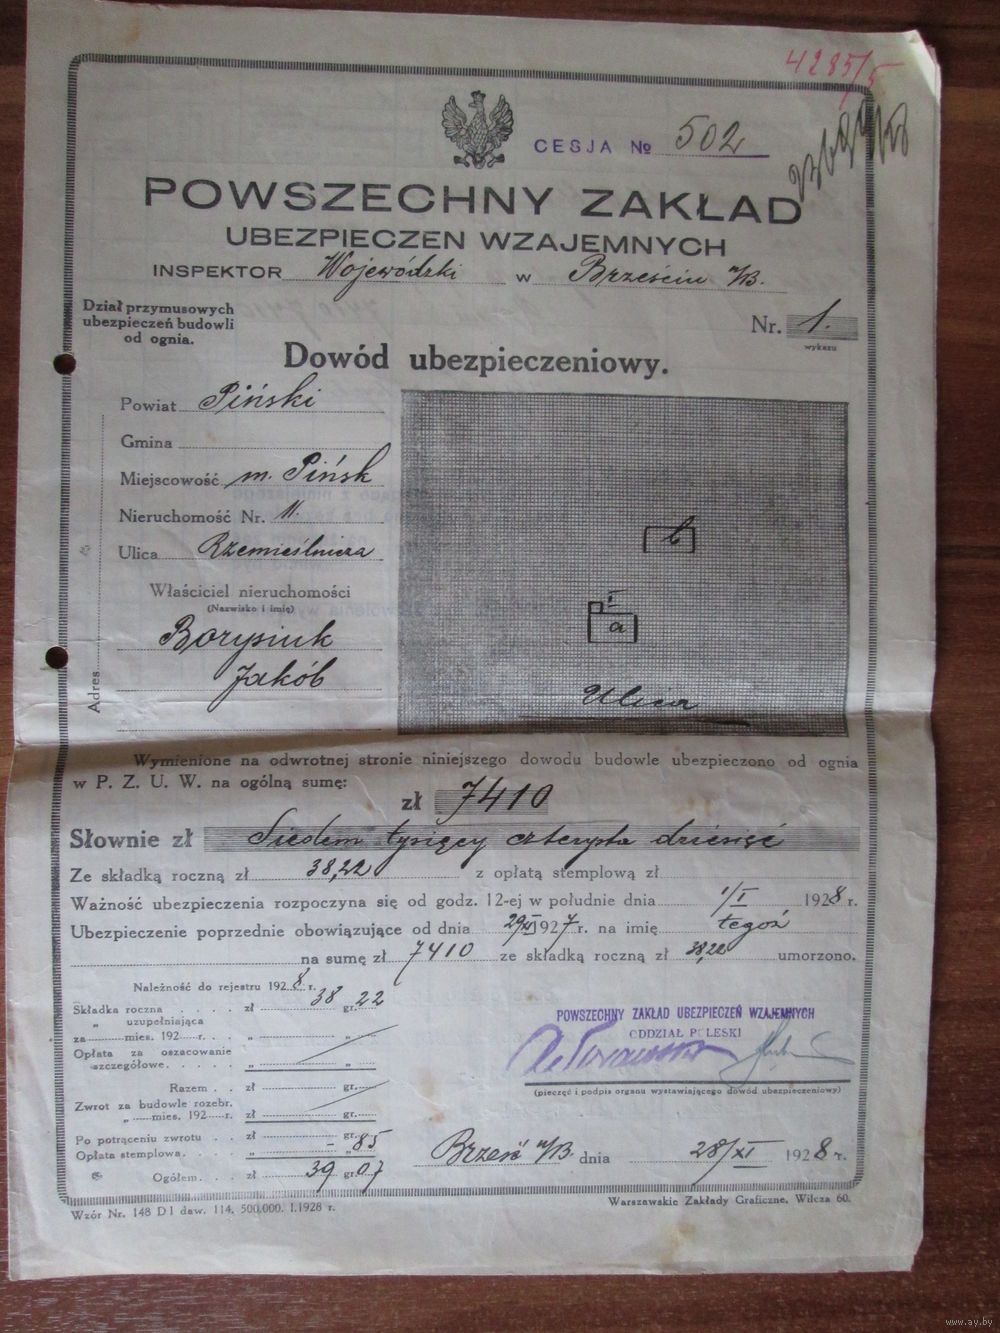 4285/5
CESJA № 502
POWSZECHNY ZAKŁAD
UBEZPIECZEŃ WZAJEMNYCH
INSPEKTOR Wojewódzki w Brześciu n/B.
Dział przymusowych
ubezpieczeń budowli
od ognia.
Nr. 1.
wykazu
Dowód ubezpieczeniowy.
Powiat Piński
Gmina
Miejscowość m. Pińsk
Nieruchomość Nr. 11.
Ulica Rzemieślnicza
Właściciel nieruchomości
(Nazwisko i imię)
Borysiuk
Jakób
Adres
b
a
Ulica
Wymienione na odwrotnej stronie niniejszego dowodu budowle ubezpieczono od ognia
w P. Z. U. W. na ogólną sumę:
zł 7410
Słownie zł Siedem tysięcy czterysta dziesięć
Ze składką roczną zł 38,22 z opłatą stemplową zł
Ważność ubezpieczenia rozpoczyna się od godz. 12-ej w południe dnia 1/I 1928 r.
Ubezpieczenie poprzednie obowiązujące od dnia 29/XI 1927 r. na imię tegoż
na sumę zł 7410 ze składką roczną zł 38,22 umorzono.
Należność do rejestru 1928 r.
Składka roczna . . . . zł 38 gr. 22
„ uzupełniająca
za mies. 192 r. . „ „
Opłata za oszacowanie
szczegółowe. . . . . . „ „
Razem . . zł gr.
Zwrot za budowle rozebr.
„ mies. 192 r. zł gr.
Po potrąceniu zwrotu . . zł gr.
Opłata stemplowa. . . . „ - „ 85
Ogółem. . . zł 39 gr. 07
POWSZECHNY ZAKŁAD UBEZPIECZEŃ WZAJEMNYCH
ODDZIAŁ POLESKI
(pieczęć i podpis organu wystawiającego dowód ubezpieczeniowy)
Brześć n/B. dnia 28/XI 1928 r.
Wzór Nr. 148 D I daw. 114. 500.000. I.1928 r.
Warszawskie Zakłady Graficzne, Wilcza 60.
www.ay.by